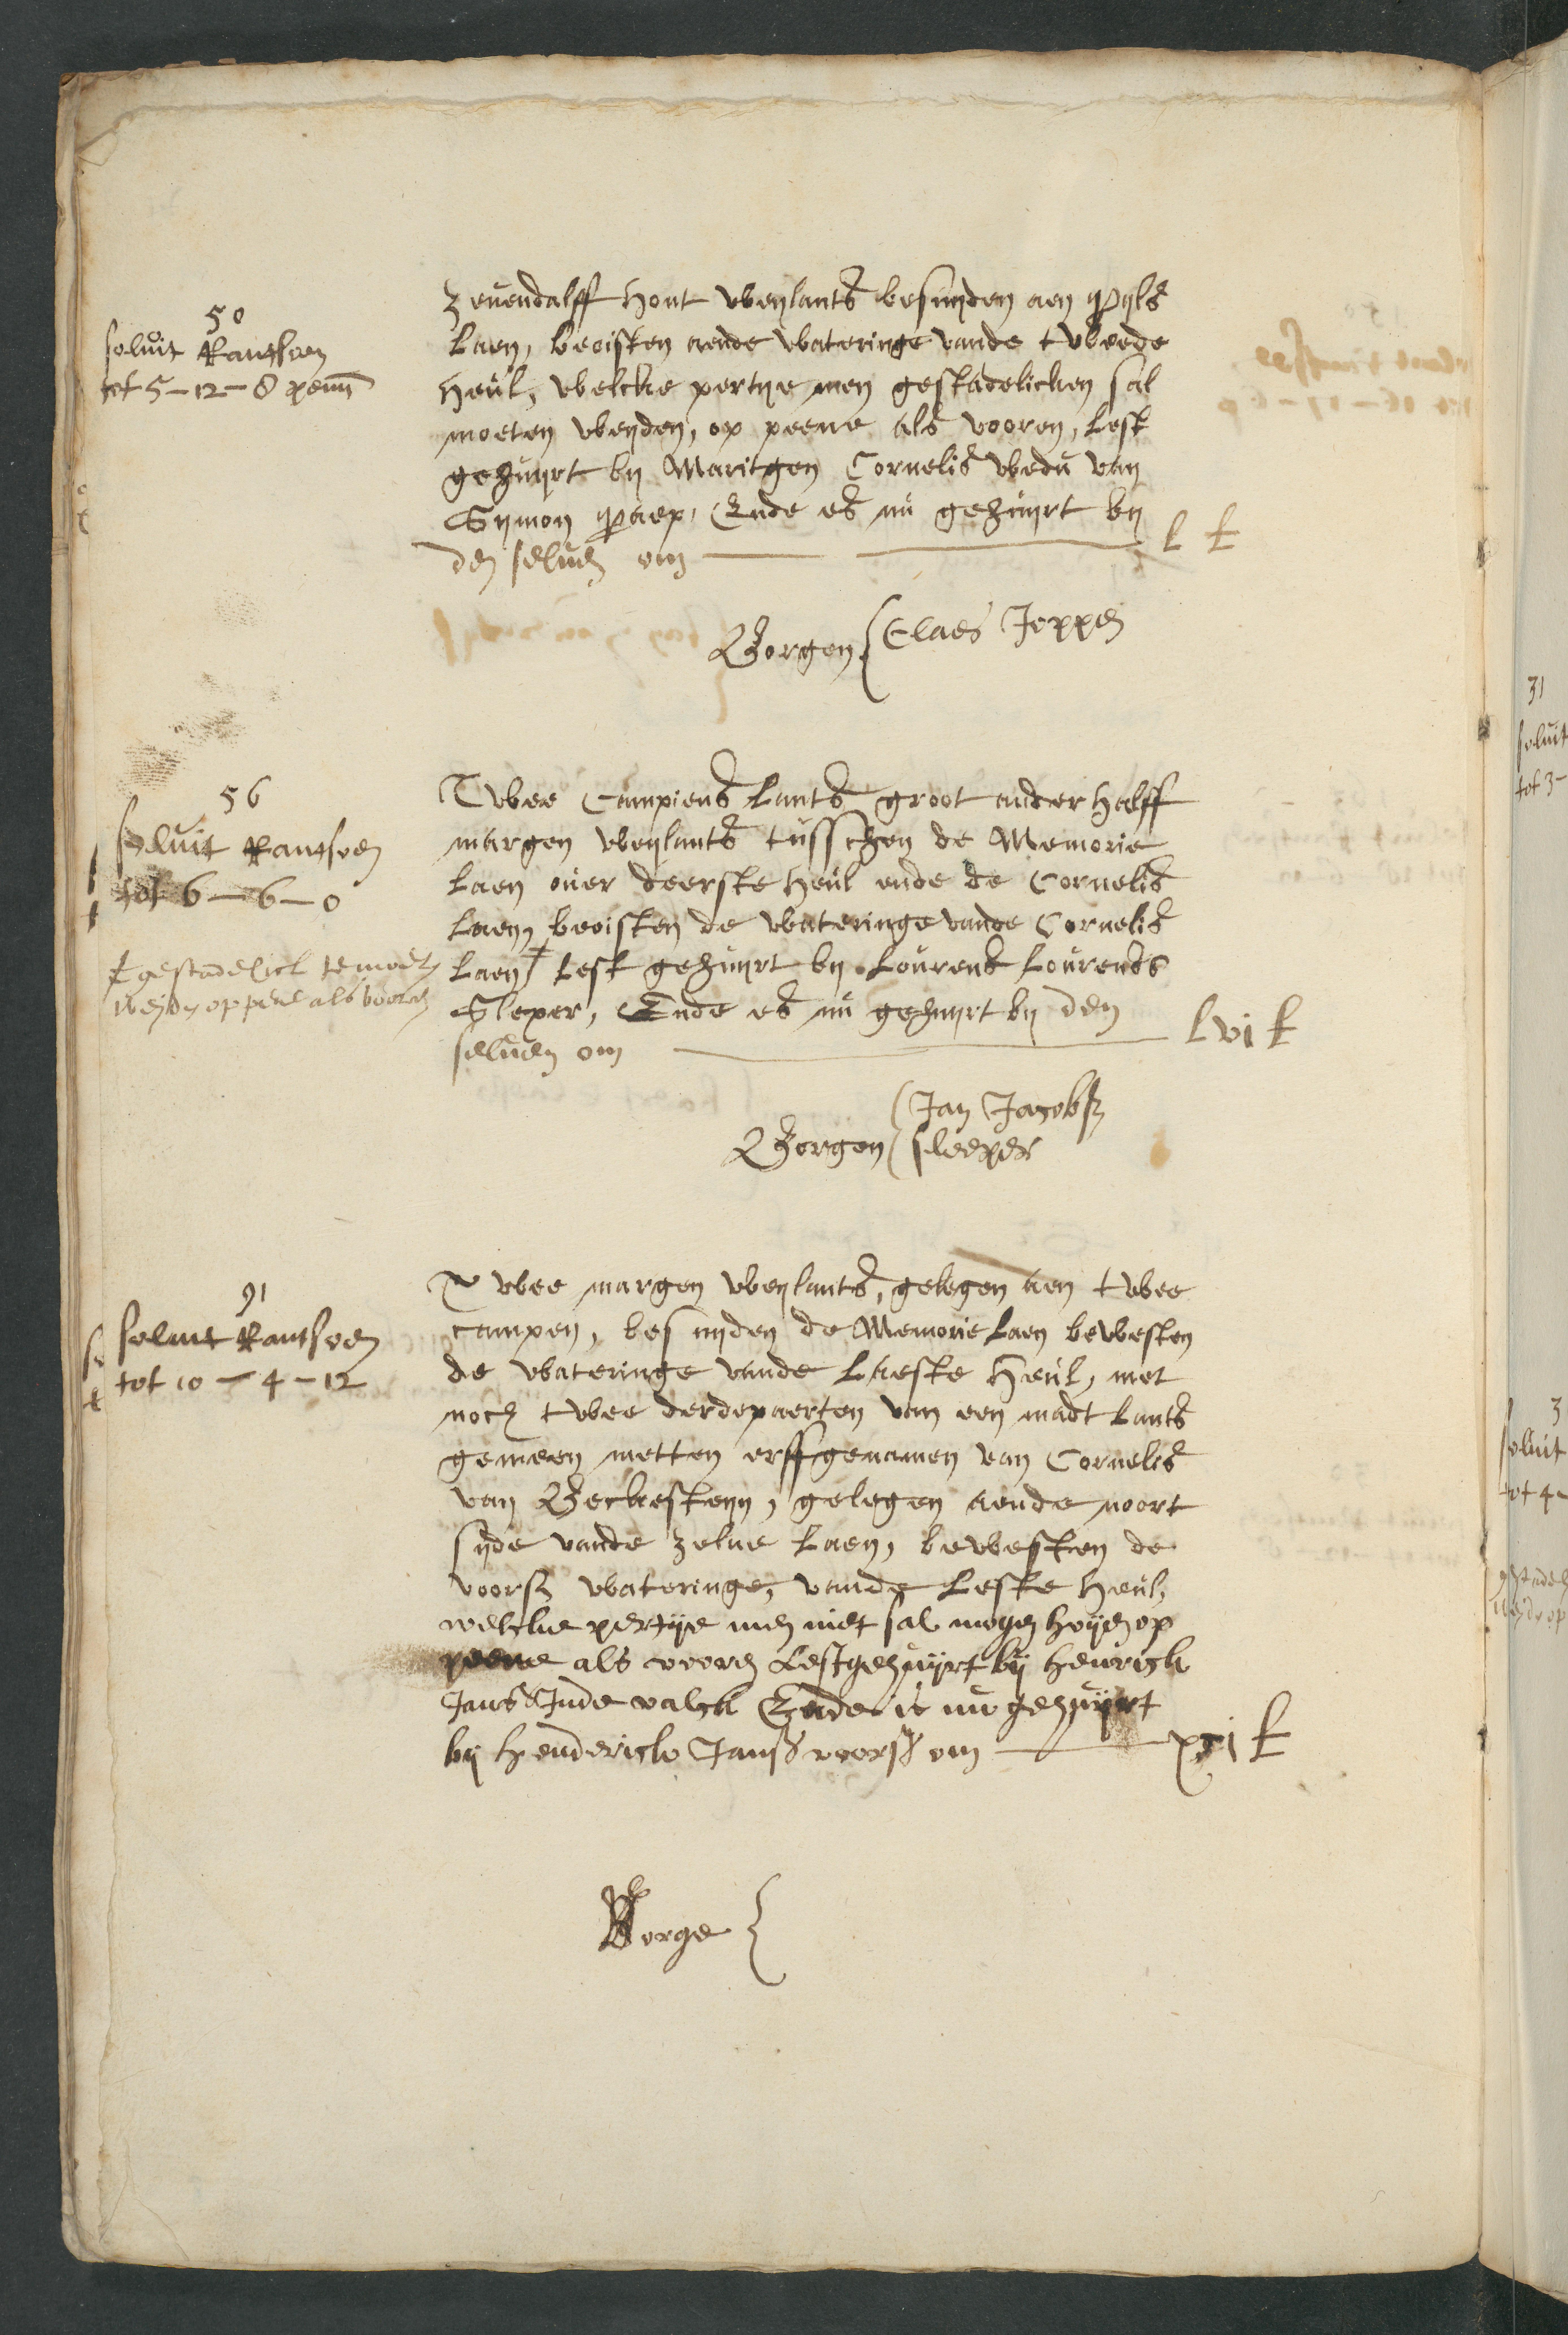 50
soluit Rantsoen
tot 5 - 12 - 8 penn
Zeuendalff hont weylants besuyden aen Pyls
Laen, beoisten aende wateringe vande tweede
heul, welcke pertye men gestadelicken sal
moeten weyden, op peene als vooren, Lest
gehuyrt by Maritgen Cornelis wedu van
Symon Paep, Ende es nu gehuyrt by
den seluen om L £
Borgen { Claes Joppen
56
soluit Rantsoen
tot 6 - 6 - 0
gestadelick te moeten
weyden op pene als vooren
Twee Campiens Lants groot anderhalff
margen weylants tusschen de Memorie
Laen ouer deerste heul ende de Cornelis
Laen, beoisten de wateringe vande Cornelis
Laen Lest gehuyrt by Lourens Lourenss
Sleper, Ende es nu gehuyrt by den
seluen om Lvi £
Borgen { Jan Jacobsz
sleeper
91
soluit Rantsoen
tot 10 - 4 - 12
Twee margen weylants, gelegen aen twee
campen, besuyden de Memorie Laen bewesten
de wateringe vande Laeste heul, met
noch twee derdepaerten van een madt Lants
gemeen metten erffgenamen van Cornelis
van Beckesteyn, gelegen aende noort
syde vande zelue Laen, bewesten de
voorsz wateringe, vande Leste heul,
welcke pertye men niet sal mogen hoyen op
peene als vooren Lest gehuyrt by henrick
Jans Inde valck Ende is nu gehuyrt
by henderick Jansz voorsz om xci £
Borge {
31
soluit
tot 3 -
3
soluit
tot 4 -